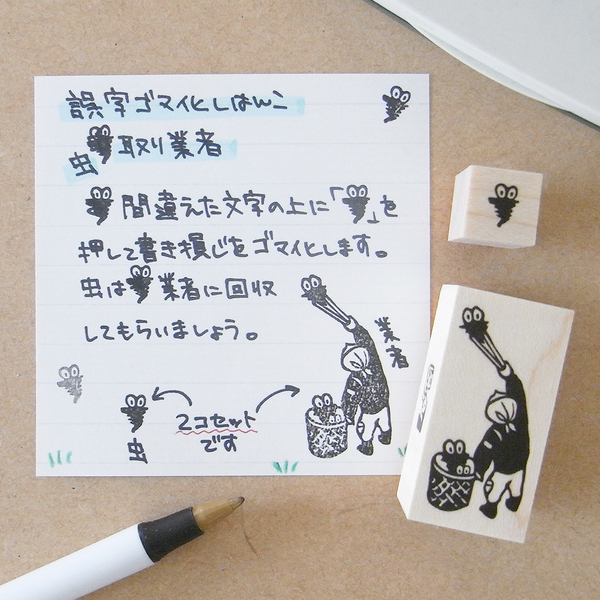 誤字ゴマイ化しはんこ
虫取り業者
間違えた文字の上に「」を
押して書き損じをゴマイ化します。
虫は業者に回収
してもらいましょう。
業者
2コセット
です
虫